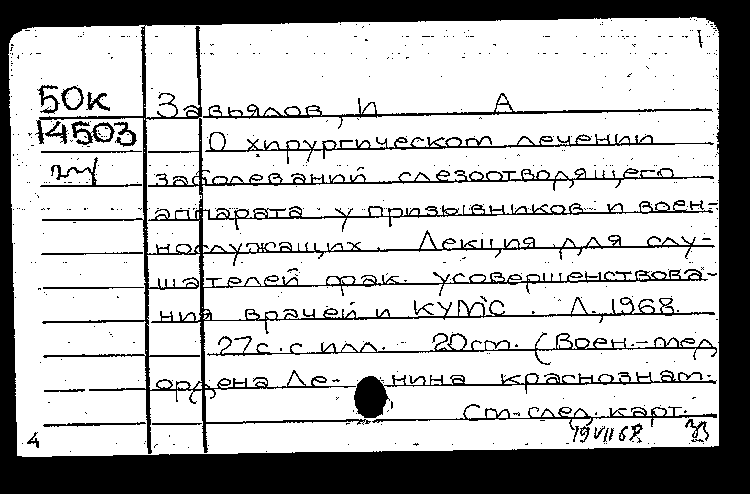 1
50к Завьялов, И А
14503 О хирургическом лечении
заболеваний слезоотводящего
аппарата у призывников и воен-
нослужащих. Лекция для слу-
шателей фак. усовершенствова-
ния врачей и КУМС. Л., 1968.
27с. с илл. 20см. (Воен.-мед
ордена Ле- нина краснознам.
См-след. карт.
4 19 VII 68